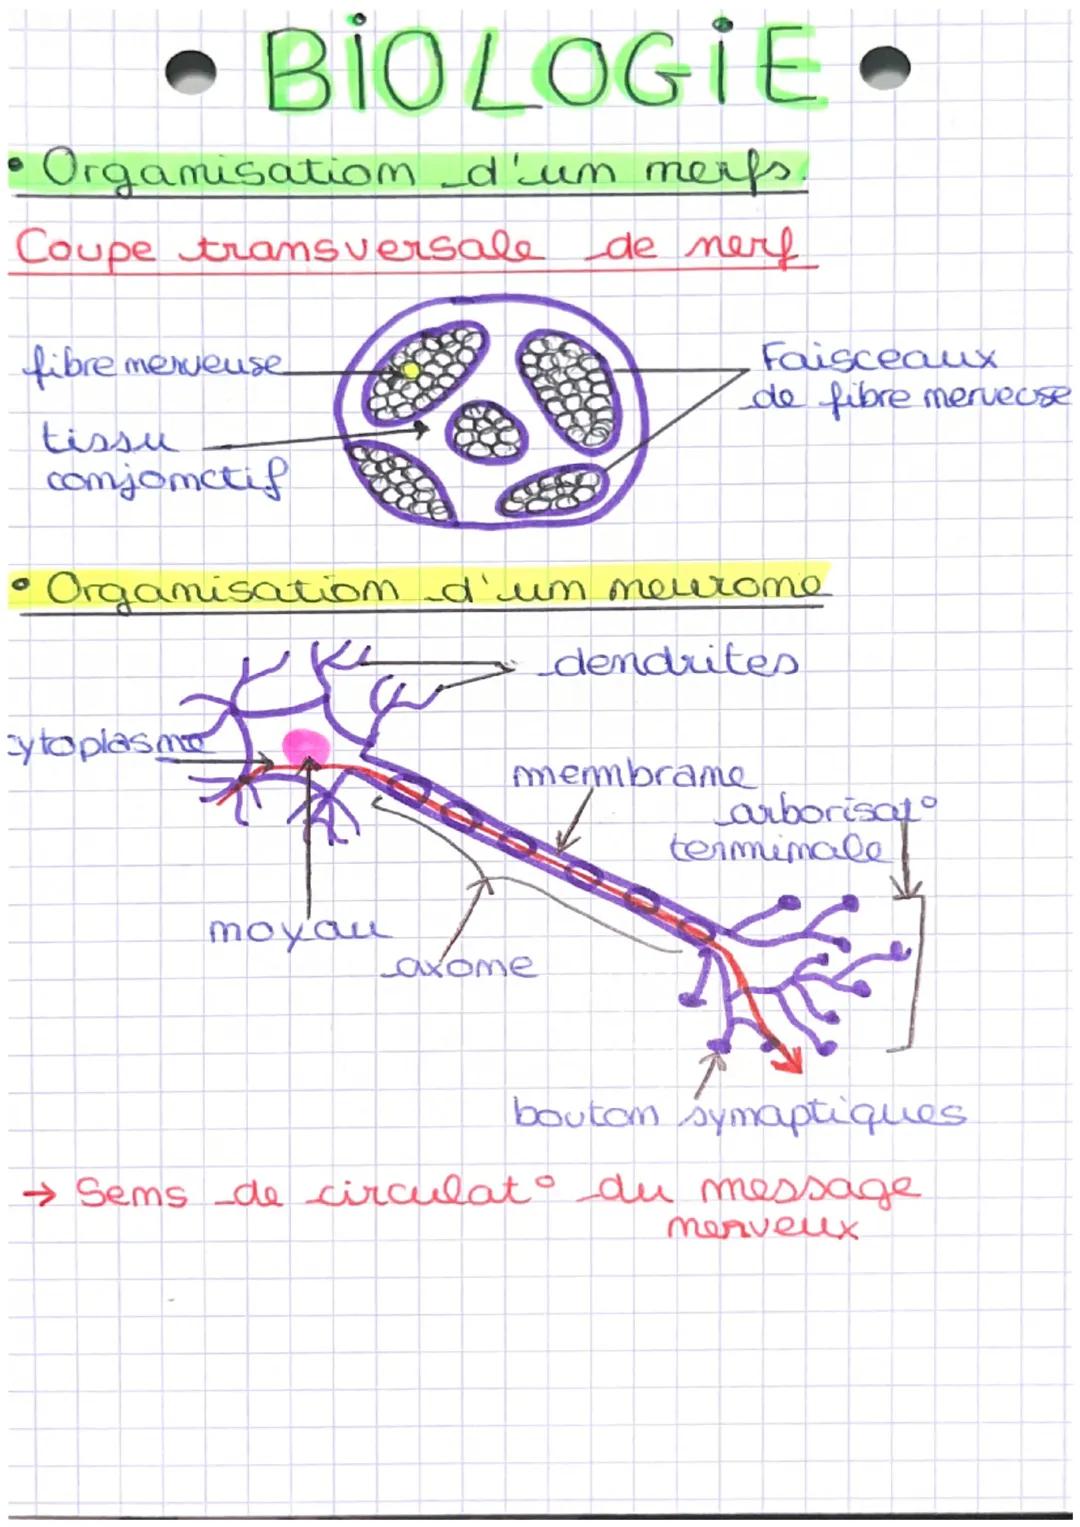 • BiOLOGiE •
• Organisation d'un nerfs.
Coupe transversale de nerf
fibre nerveuse
Faisceaux
de fibre nerveuse
tissu
conjonctif
• Organisation d'un neurone
dendrites
cytoplasme
membrane
arborisat°
terminale
noyau
axone
bouton synaptiques
→ Sens de circulat° du message
nerveux